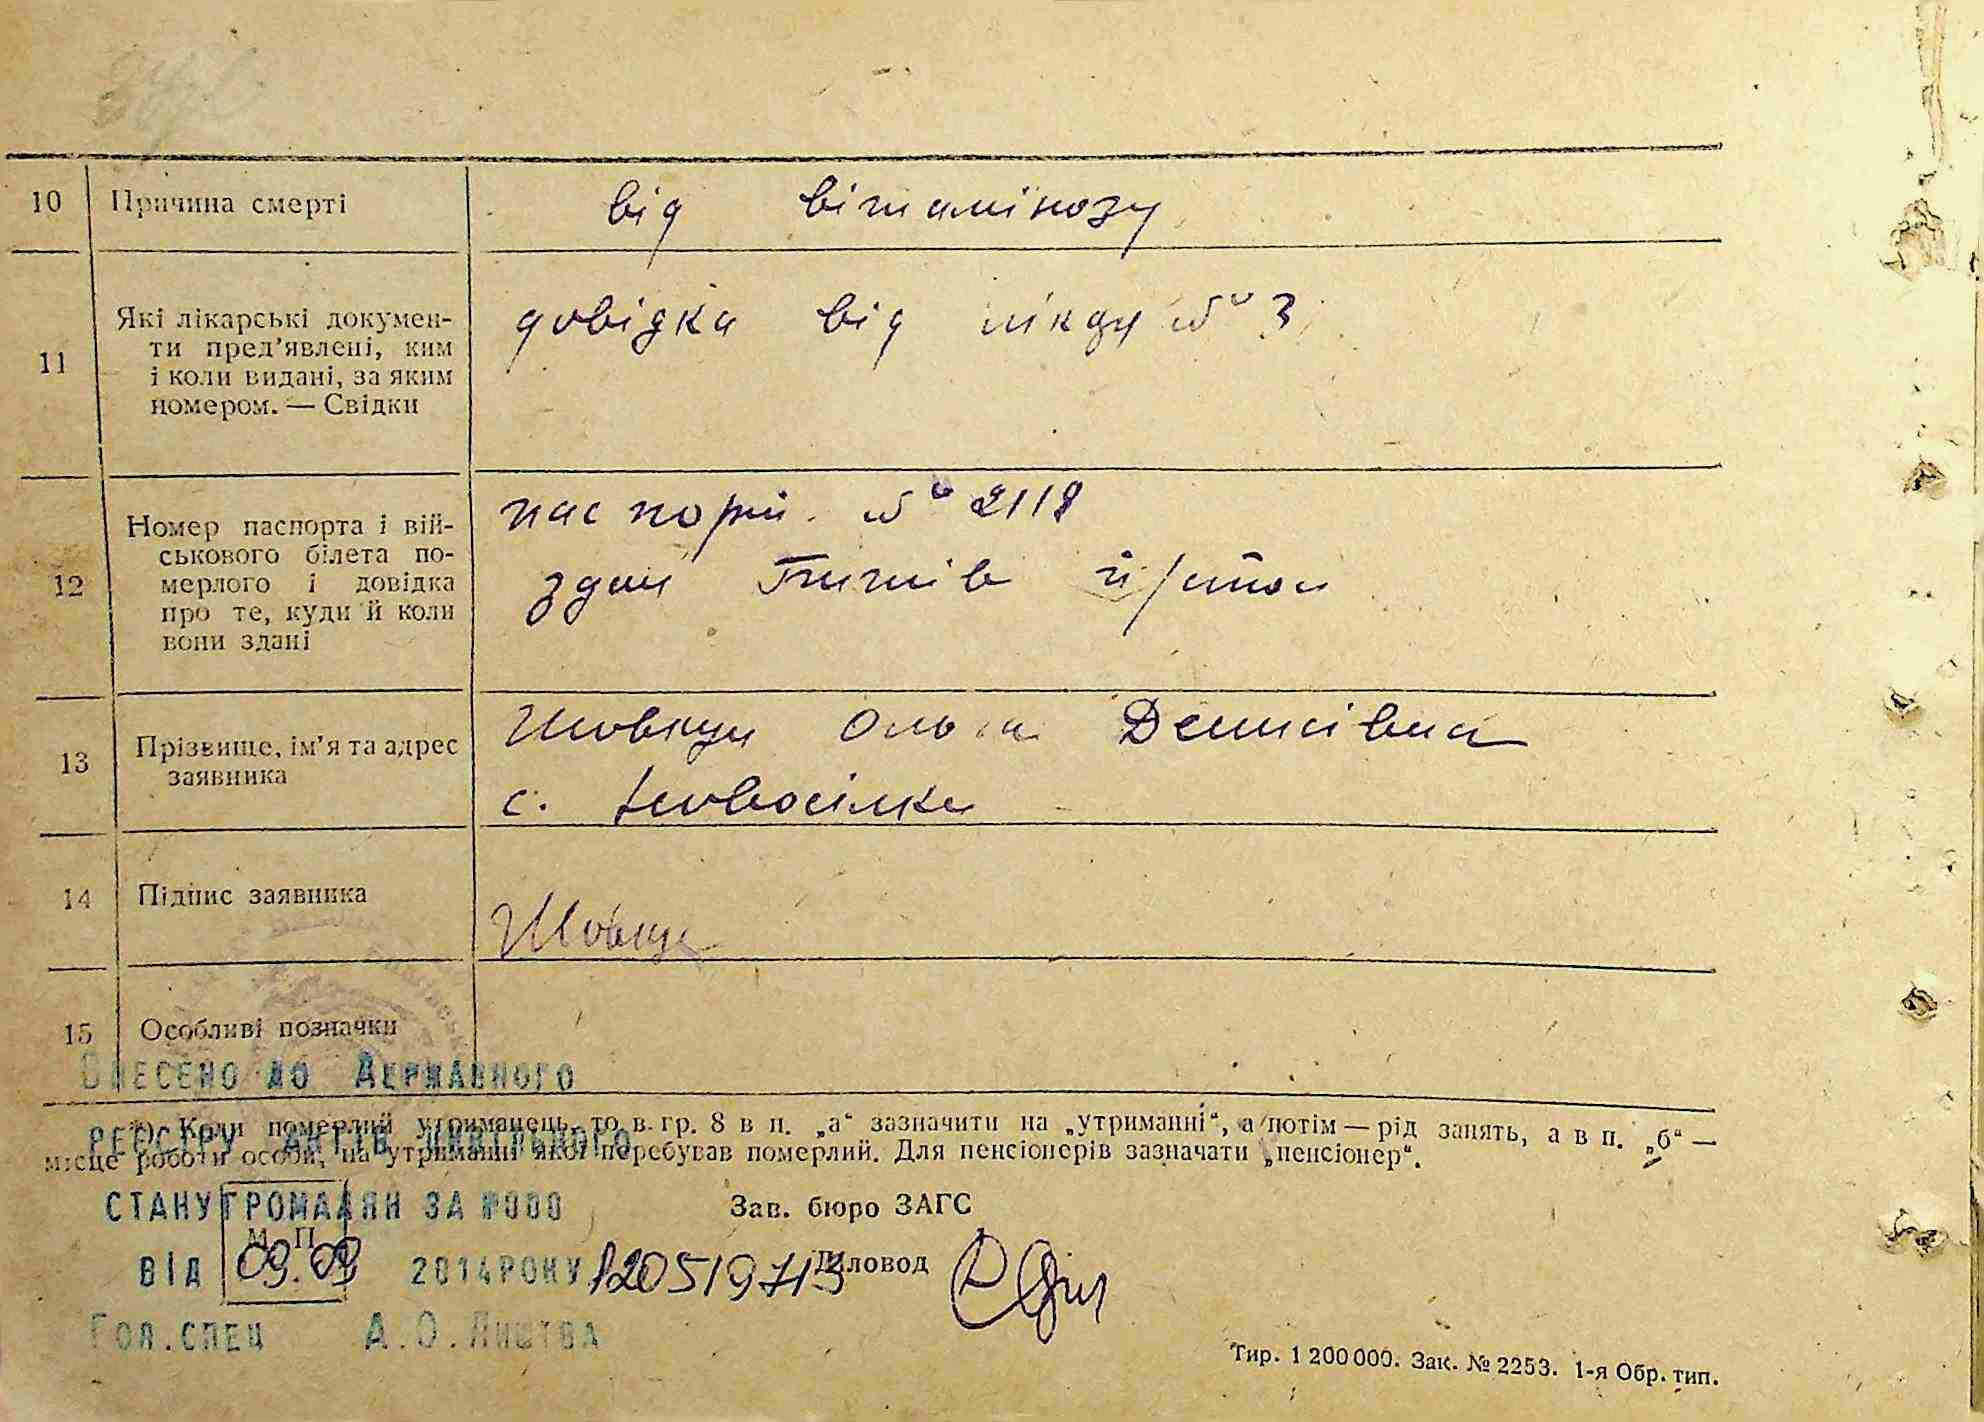 10 Причина смерті від вітамінозу
11 Які лікарські докумен-
ти пред'явлені, ким
і коли видані, за яким
номером. — Свідки
довідка від лікаря № 3
12 Номер паспорта і вій-
ськового білета по-
мерлого і довідка
про те, куди й коли
вони здані
паспорт. № 2118
здан
13 Прізвище, ім'я та адрес
заявника
Шовкун Ольга Денисівна
с. Новосілка
14 Підпис заявника
15 Особливі позначки
Внесено до Державного
реєстру актів цивільного
стану громадян за №000
від 09.09 2014 року 12051973
Гол.спец А.О.Листва
*) Коли померлий утриманець, то в гр. 8 в п. „а“ зазначити на „утриманні“, а потім — рід занять, а в п. „б“ —
місце роботи особи, на утриманні якої перебував померлий. Для пенсіонерів зазначати „пенсіонер“.
М. П.
Зав. бюро ЗАГС
Діловод
Тир. 1 200 000. Зак. № 2253. 1-я Обр. тип.